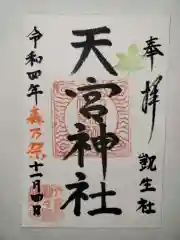 奉拝
凱生社
天宮神社
令和四年
十一月四日